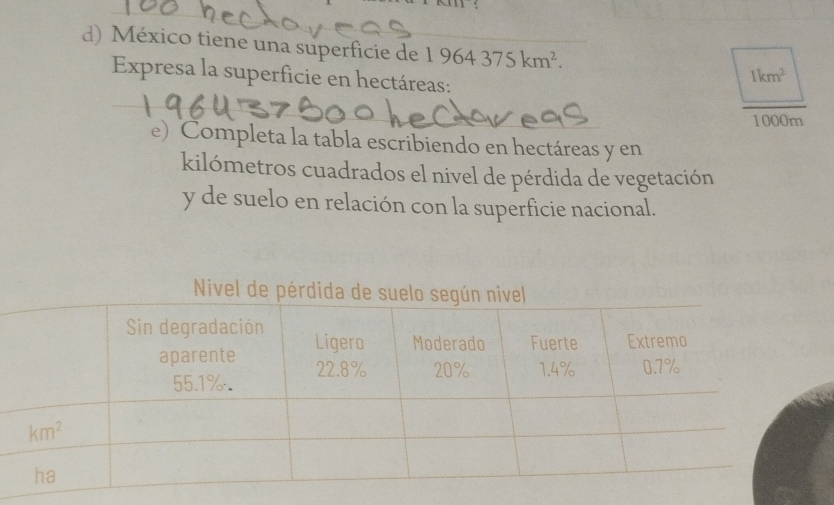 100 hectareas
d) México tiene una superficie de 1 964 375 km².
Expresa la superficie en hectáreas:
196437500 hectareas
1km²
1000m
e) Completa la tabla escribiendo en hectáreas y en
kilómetros cuadrados el nivel de pérdida de vegetación
y de suelo en relación con la superficie nacional.
Nivel de pérdida de suelo según nivel
Sin degradación aparente 55.1%. Ligero 22.8% Moderado 20% Fuerte 1.4% Extremo 0.7%
km²
ha